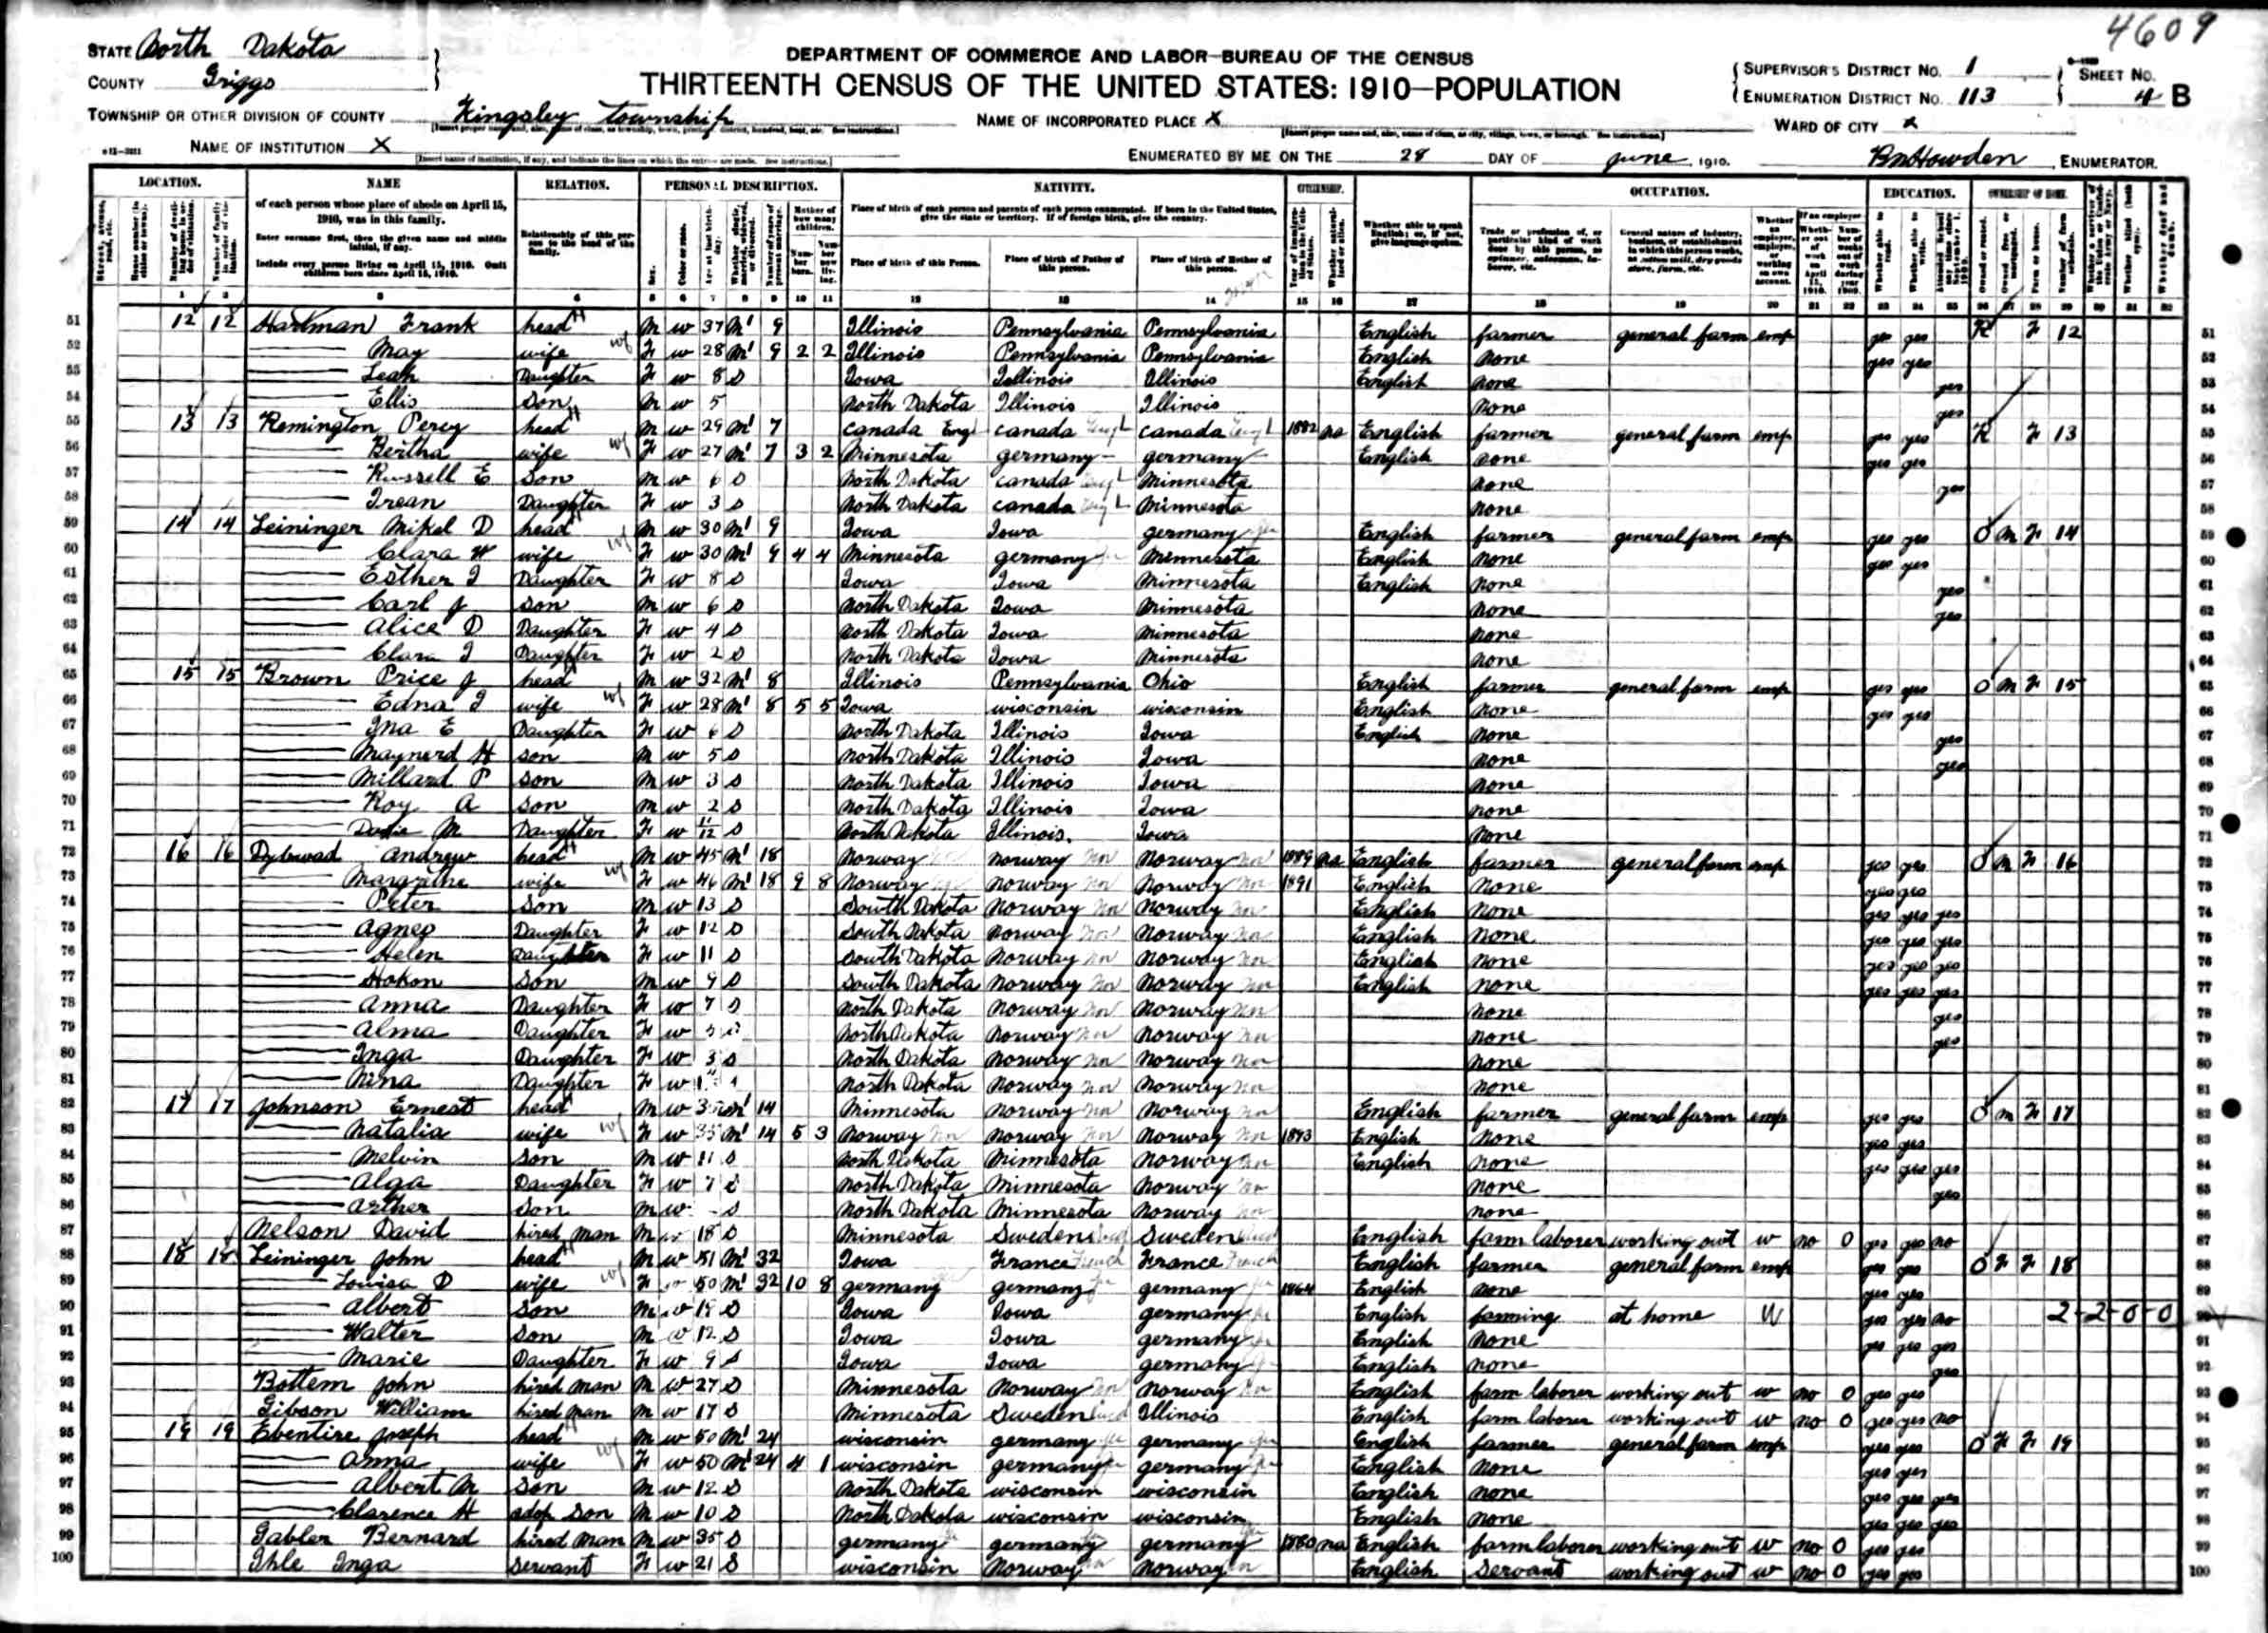 4609
STATE North Dakota
COUNTY Griggs
DEPARTMENT OF COMMERCE AND LABOR—BUREAU OF THE CENSUS
THIRTEENTH CENSUS OF THE UNITED STATES: 1910—POPULATION
SUPERVISOR'S DISTRICT NO. 1
ENUMERATION DISTRICT NO. 113
SHEET NO. 4 B
TOWNSHIP OR OTHER DIVISION OF COUNTY Kingsley township
NAME OF INCORPORATED PLACE X
WARD OF CITY X
NAME OF INSTITUTION X
ENUMERATED BY ME ON THE 28 DAY OF June, 1910. Howden, ENUMERATOR.
LOCATION. NAME RELATION. PERSONAL DESCRIPTION. NATIVITY. CITIZENSHIP. OCCUPATION. EDUCATION. OWNERSHIP OF HOME.
of each person whose place of abode on April 15, 1910, was in this family.
Enter surname first, then the given name and middle initial, if any.
Include every person living on April 15, 1910. Omit children born since April 15, 1910.
Relationship of this person to the head of the family.
Place of birth of each person and parents of each person enumerated. If born in the United States, give the state or territory. If of foreign birth, give the country.
Place of birth of this Person. Place of birth of Father of this person. Place of birth of Mother of this person.
Whether able to speak English; or, if not, give language spoken.
51 12 12 Hartman Frank head M w 37 M1 9 Illinois Pennsylvania Pennsylvania English farmer general farm emp yes yes R F 12 51
52 May wife F w 28 M1 9 2 2 Illinois Pennsylvania Pennsylvania English none yes yes 52
53 Leah Daughter F w 8 S Iowa Illinois Illinois English none yes 53
54 Ellis Son M w 5 North Dakota Illinois Illinois none yes 54
55 13 13 Remington Percy head M w 29 M1 7 Canada Eng Canada Canada 1882 na English farmer general farm emp yes yes R F 13 55
56 Bertha wife F w 27 M1 7 3 2 Minnesota germany germany English none yes yes 56
57 Russell E Son M w 6 S North Dakota Canada Minnesota none yes 57
58 Irean Daughter F w 3 S North Dakota Canada Minnesota none 58
59 14 14 Leininger Mikel D head M w 30 M1 9 Iowa Iowa germany English farmer general farm emp yes yes O M F 14 59
60 Clara W wife F w 30 M1 9 4 4 Minnesota germany Minnesota English none yes yes 60
61 Esther I Daughter F w 8 S Iowa Iowa Minnesota English none yes 61
62 Carl J son M w 6 S North Dakota Iowa Minnesota none yes 62
63 Alice D Daughter F w 4 S North Dakota Iowa Minnesota none 63
64 Clara I Daughter F w 2 S North Dakota Iowa Minnesota none 64
65 15 15 Brown Price J head M w 32 M1 8 Illinois Pennsylvania Ohio English farmer general farm emp yes yes O M F 15 65
66 Edna I wife F w 28 M1 8 5 5 Iowa wisconsin wisconsin English none yes yes 66
67 Ina E Daughter F w 6 S North Dakota Illinois Iowa English none yes 67
68 Maynerd H son M w 5 S North Dakota Illinois Iowa none yes 68
69 Millard P son M w 3 S North Dakota Illinois Iowa none 69
70 Roy A son M w 2 S North Dakota Illinois Iowa none 70
71 M Daughter F w S North Dakota Illinois Iowa none 71
72 16 16 Dybwad Andrew head M w 45 M1 18 Norway Norway Nor Norway Nor 1889 na English farmer general farm emp yes yes O M F 16 72
73 Margrithe wife F w 46 M1 18 9 8 Norway Norway Nor Norway Nor 1891 English none yes yes 73
74 Peter Son M w 13 S South Dakota Norway Nor Norway Nor English none yes yes yes 74
75 Agnes Daughter F w 12 S South Dakota Norway Nor Norway Nor English none yes yes yes 75
76 Helen Daughter F w 11 S South Dakota Norway Nor Norway Nor English none yes yes yes 76
77 Hakon Son M w 9 S South Dakota Norway Nor Norway Nor English none yes yes yes 77
78 Anna Daughter F w 7 S North Dakota Norway Nor Norway Nor none yes 78
79 Alma Daughter F w 5 North Dakota Norway Nor Norway Nor none yes 79
80 Inga Daughter F w 3 S North Dakota Norway Nor Norway Nor none 80
81 Nina Daughter F w North Dakota Norway Nor Norway Nor none 81
82 17 17 Johnson Ernest head M w M1 14 Minnesota Norway Nor Norway Nor English farmer general farm emp yes yes O M F 17 82
83 Natalia wife F w 35 M1 14 5 3 Norway Norway Nor Norway Nor 1893 English none yes yes 83
84 Melvin Son M w 11 S North Dakota Minnesota Norway Nor English none yes yes yes 84
85 Alga Daughter F w 7 S North Dakota Minnesota Norway Nor none yes 85
86 Arther Son M w S North Dakota Minnesota Norway Nor none 86
87 Nelson David hired man M w 18 S Minnesota Sweden Sweden English farm laborer working out w no 0 yes yes no 87
88 18 18 Leininger John head M w 51 M1 32 Iowa France French France French English farmer general farm emp yes yes O F F 18 88
89 Louisa D wife F w 50 M1 32 10 8 germany germany germany 1864 English none yes yes 89
90 Albert son M w 19 S Iowa Iowa germany English farming at home W yes yes no 2-2-0-0 90
91 Walter son M w 12 S Iowa Iowa germany English none yes yes yes 91
92 Marie Daughter F w 9 S Iowa Iowa germany English none yes 92
93 Bottem John hired man M w 27 S Minnesota Norway Nor Norway Nor English farm laborer working out w no 0 yes yes 93
94 Gibson William hired man M w 17 S Minnesota Sweden Illinois English farm laborer working out w no 0 yes yes no 94
95 19 19 Ebentire Joseph head M w 50 M1 24 wisconsin germany germany English farmer general farm emp yes yes O F F 19 95
96 Anna wife F w 50 M1 24 4 1 wisconsin germany germany English none yes yes 96
97 Albert M Son M w 12 S North Dakota wisconsin wisconsin English none yes yes yes 97
98 Clarence H adop son M w 10 S North Dakota wisconsin wisconsin English none yes yes yes 98
99 Gabler Bernard hired man M w 35 S germany germany germany 1880 na English farm laborer working out w no 0 yes yes 99
100 Ihle Inga servant F w 21 S wisconsin Norway Norway English Servant working out w no 0 yes yes 100